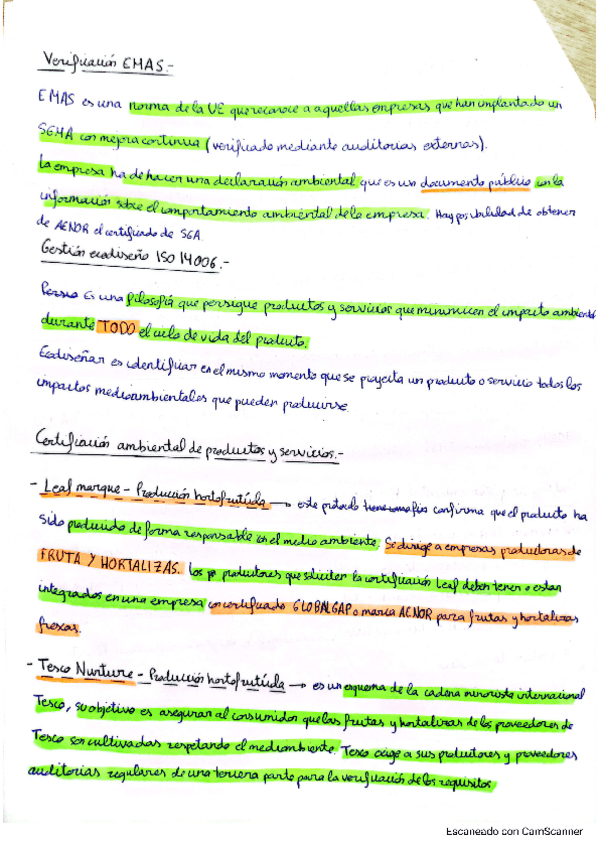 Verificación EMAS.-
EMAS es una norma de la UE que reconoce a aquellas empresas que han implantado un
SGMA con mejora continua (verificado mediante auditorias externas).
La empresa ha de hacer una declaración ambiental que es un documento público con la
información sobre el comportamiento ambiental de la empresa. Hay posibilidad de obtener
de AENOR el certificado de SGA.
Gestión ecodiseño ISO 14006.-
Es una filosofía que persigue productos y servicios que minimicen el impacto ambiental
durante TODO el ciclo de vida del producto.
Ecodiseñar es identificar en el mismo momento que se proyecta un producto o servicio todos los
impactos medioambientales que pueden producirse.
Certificación ambiental de productos y servicios.-
- Leaf marque - Producción hortofrutícula → este protocolo tiene como fin confirma que el producto ha
sido producido de forma responsable con el medio ambiente. Se dirige a empresas productoras de
FRUTA Y HORTALIZAS. los productores que soliciten la certificación Leaf deben tener o estar
integrados en una empresa con certificado GLOBALGAP o marca AENOR para frutas y hortalizas
frescas.
- Tesco Nurture - Producción hortofrutícula → es un esquema de la cadena minorista internacional
Tesco, su objetivo es asegurar al consumidor que las frutas y hortalizas de los proveedores de
Tesco son cultivadas respetando el medioambiente. Tesco exige a sus productores y proveedores
auditorias regulares de una tercera parte para la verificación de los requisitos
Escaneado con CamScanner